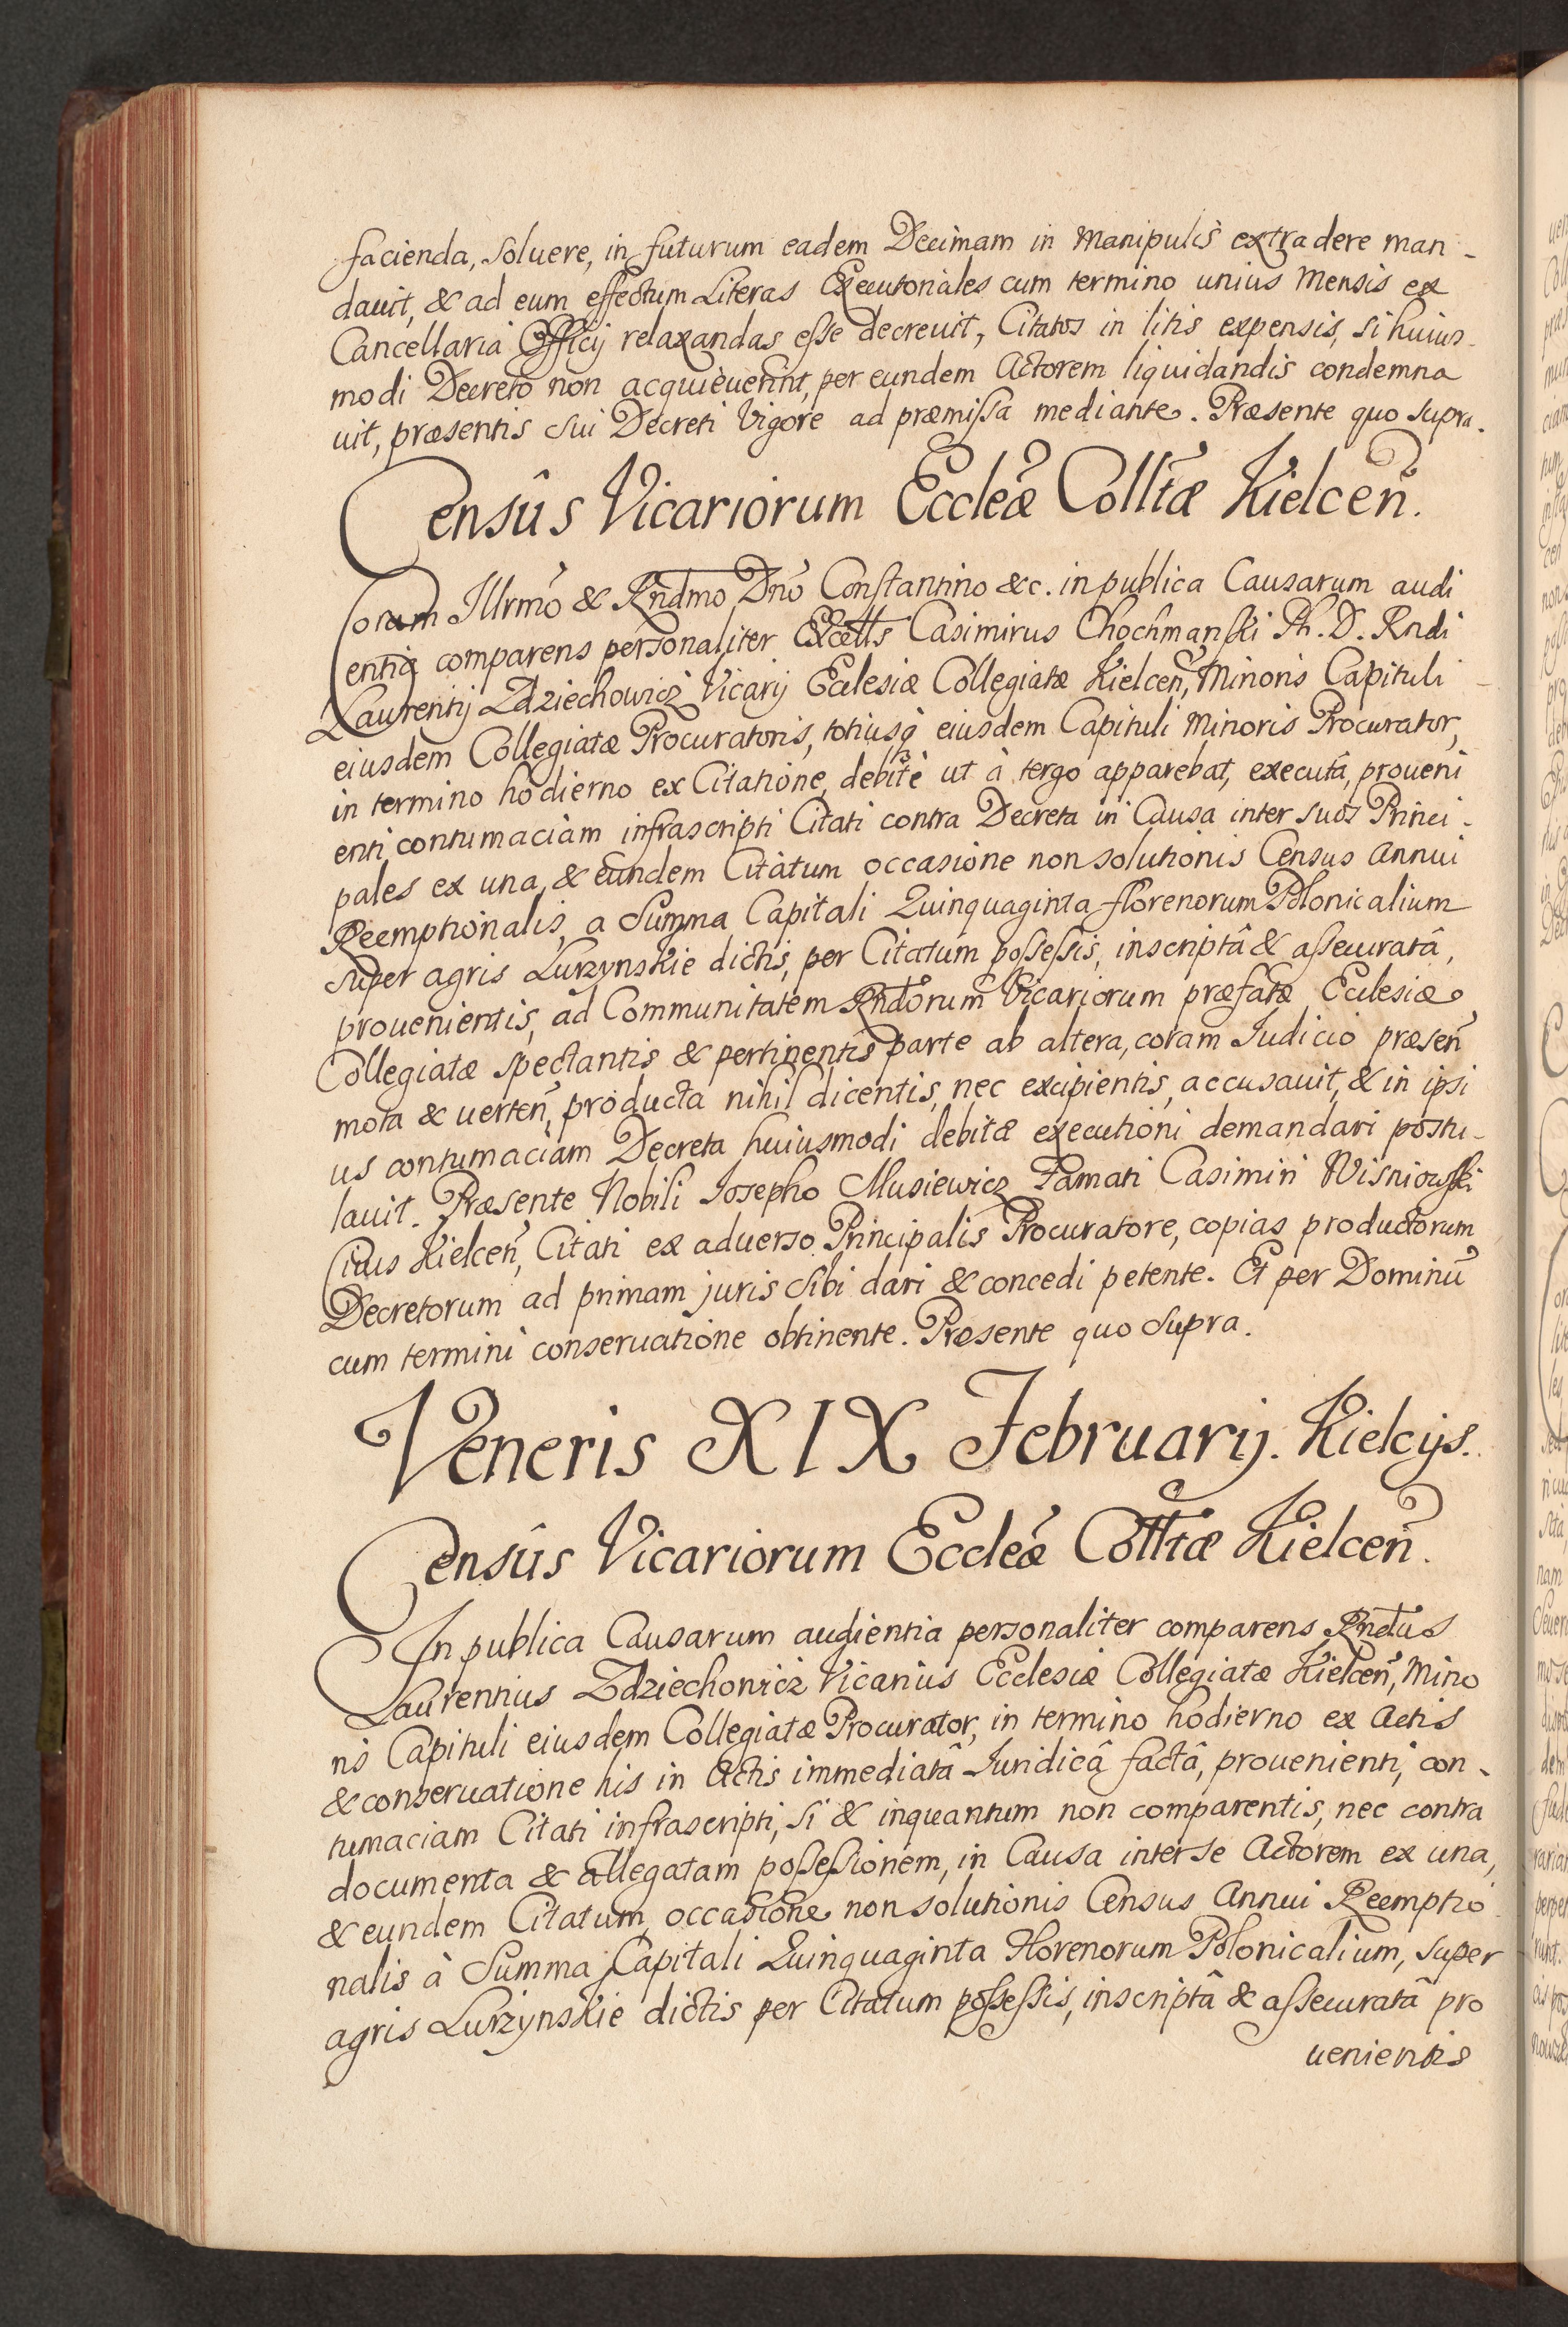 facienda, soluere, in futurum eadem Decimam in Manipulis extradere man-
dauit, & ad eum effectum Literas Executoriales cum termino unius Mensis ex
Cancellaria Officij relaxandas esse decreuit, Citatos in litis expensis, si huius-
modi Decreto non acquieuerint, per eundem Actorem liquidandis condemna
uit, præsentis sui Decreti Vigore ad præmissa mediante. Præsente quo supra.
Censûs Vicariorum Eccleæ Colltæ Kielcen.
Coram Illrmo & Rndmo Dno Constantino &c. in publica Causarum audi
entia comparens personaliter Excells Casimirus Chochmanski Ph. D. Rndi
Laurentij Zdziechowicz Vicarij Eclesiæ Collegiatæ Kielcen, Minoris Capituli
eiusdem Collegiatæ Procuratoris, totiusq eiusdem Capituli Minoris Procurator,
in termino hodierno ex Citatione, debite ut à tergo apparebat, executâ, proueni
enti contumaciam infrascripti Citati contra Decreta in Causa inter suos Princi-
pales ex una, & eundem Citatum occasione non solutionis Census Annui
Reemptionalis, a Summa Capitali Quinquaginta florenorum Polonicalium
super agris Lurzynskie dictis, per Citatum possessis, inscriptâ & assecuratâ,
prouenientis, ad Communitatem Rndorum Vicariorum præfatæ Eclesiæ
Collegiatæ spectantis & pertinentis parte ab altera, coram Iudicio præsen
mota & uerten, producta nihil dicentis, nec excipientis, accusauit, & in ipsi
us contumaciam Decreta huiusmodi debitæ executioni demandari postu-
lauit. Præsente Nobili Iosepho Musiewicz Famati Casimiri Wisniowski
Ciuis Kielcen, Citati ex aduerso Principalis Procuratore, copias productorum
Decretorum ad primam juris sibi dari & concedi petente. Et per Dominũ
cum termini conseruatione obtinente. Præsente quo supra.
Veneris XIX Februarij. Kielcijs.
Censûs Vicariorum Eccleæ Colltæ Kielcen.
In publica Causarum audientia personaliter comparens Rndus
Laurentius Zdziechowicz Vicarius Ecclesiæ Collegiatæ Kielcen, Mino
ris Capituli eiusdem Collegiatæ Procurator, in termino hodierno ex Actis
& conseruatione his in Actis immediatâ Iuridicâ factâ, prouenienti, con-
tumaciam Citati infrascripti, si & inquantum non comparentis, nec contra
documenta & allegatam possessionem, in Causa inter se Actorem ex una,
& eundem Citatum, occasione non solutionis Census Annui Reemptio
nalis à Summa Capitali Quinquaginta Florenorum Polonicalium, super
agris Lurzynskie dictis per Citatum possessis, inscriptâ & assecuratâ pro
uenientis